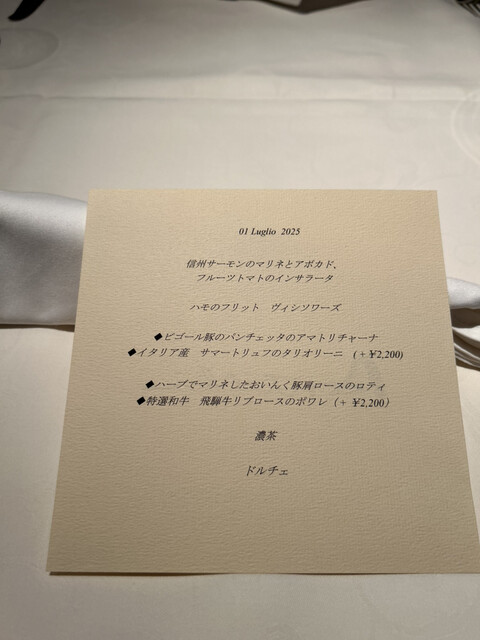 01 Luglio 2025
信州サーモンのマリネとアボカド、
フルーツトマトのインサラータ
ハモのフリット ヴィシソワーズ
◆ビゴール豚のパンチェッタのアマトリチャーナ
◆イタリア産 サマートリュフのタリオリーニ (+¥2,200)
◆ハーブでマリネしたおいんく豚肩ロースのロティ
◆特選和牛 飛騨牛リブロースのポワレ (+ ¥2,200)
濃茶
ドルチェ